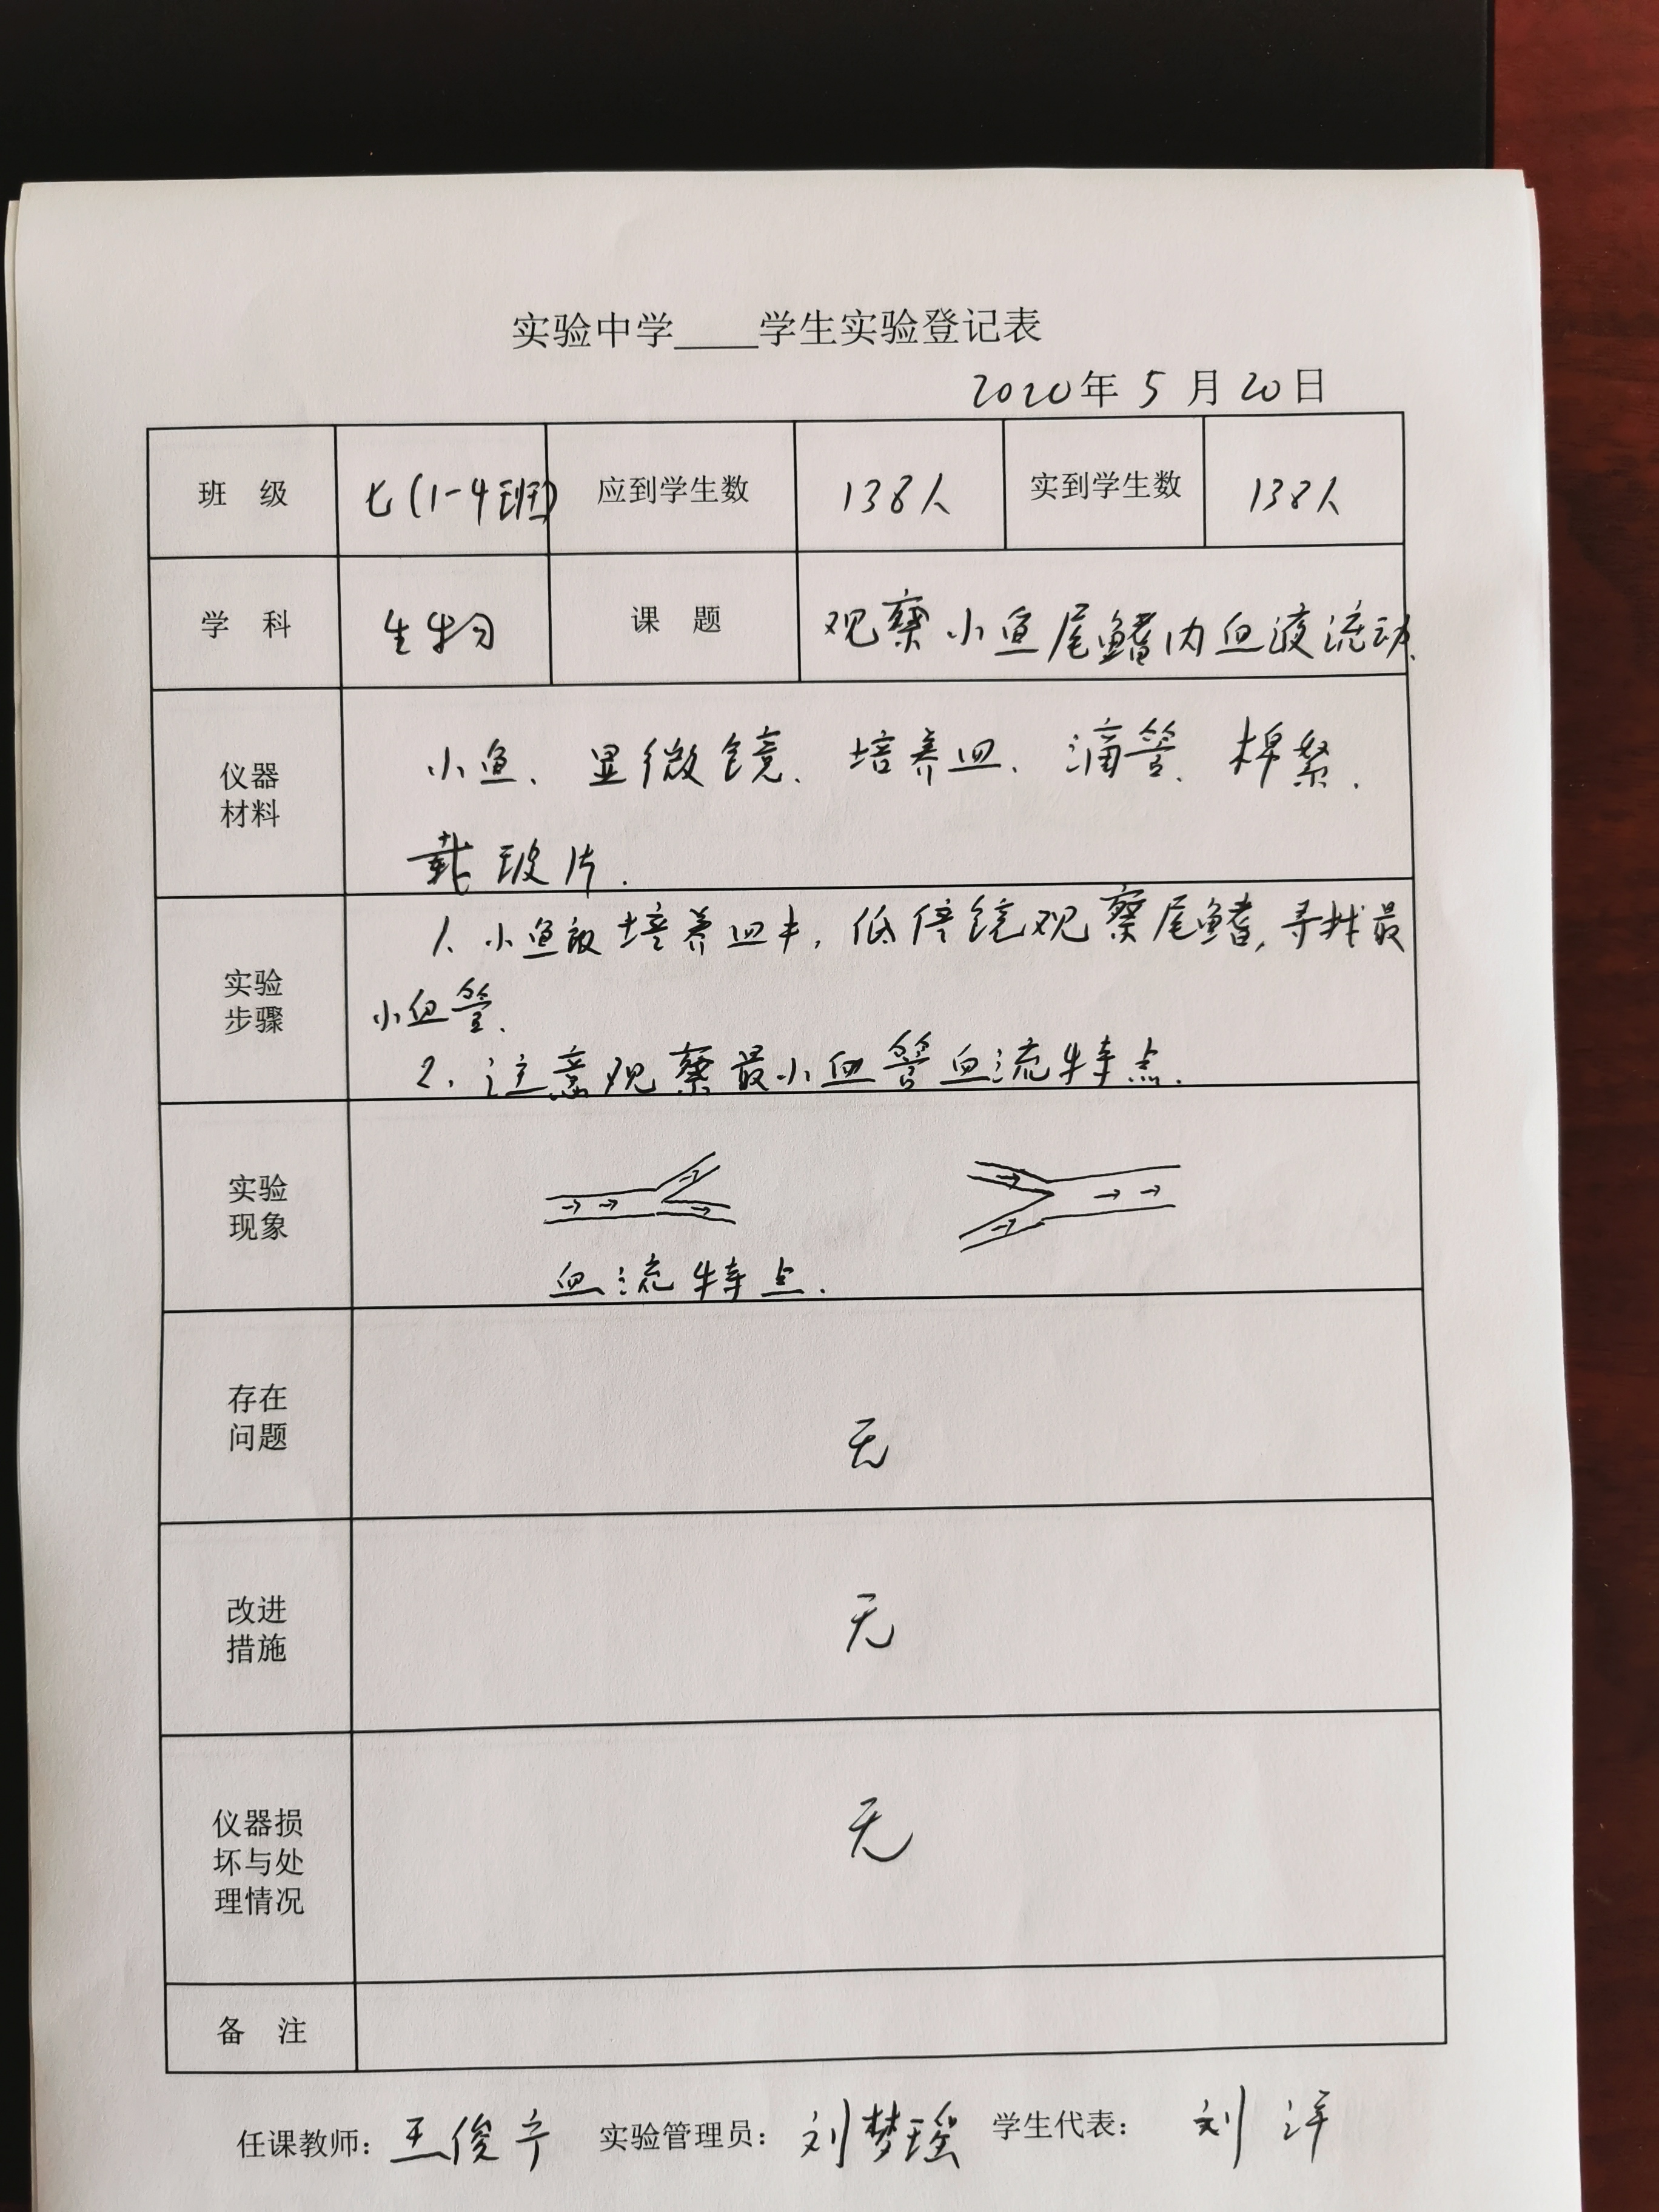 实验中学____学生实验登记表
2020年5月20日
班 级 七(1-4班) 应到学生数 138人 实到学生数 138人
学 科 生物 课 题 观察小鱼尾鳍内血液流动.
仪器
材料
小鱼、显微镜、培养皿、滴管、棉絮.
载玻片.
实验
步骤
1. 小鱼放培养皿中,低倍镜观察尾鳍,寻找最
小血管.
2. 注意观察最小血管血流特点.
实验
现象
血流特点.
存在
问题
无
改进
措施
无
仪器损
坏与处
理情况
无
备 注
任课教师: 王俊 实验管理员: 刘梦瑶 学生代表: 刘洋